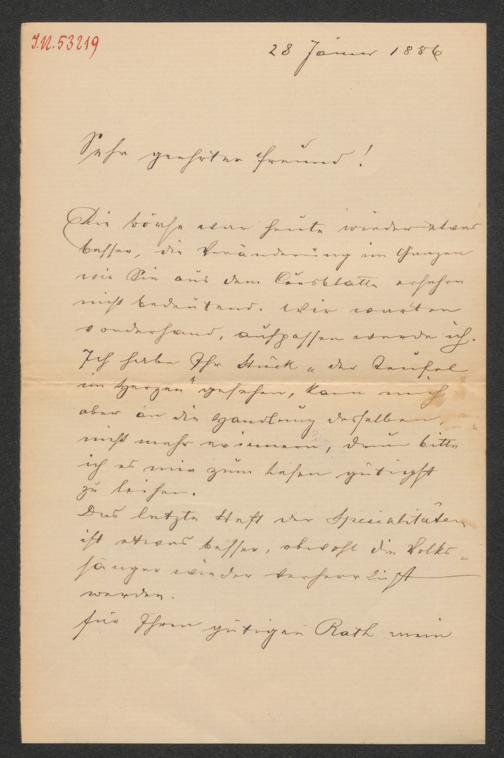 J.N. 53219
28 Jänner 1886
Sehr geehrter Freund!
Die Börse war heute wieder etwas
besser, die Veränderung im Ganzen
wie Sie aus dem Coursblatte ersehen
nicht bedeutend. Wir warten
vonderhand, aufpassen werde ich.
Ich habe Ihr Stück „der Teufel
im Herzen" gesehen, kann mich
aber an die Handlung desselben
nicht mehr erinnern, drum bitte
ich es mir zum lesen gütigst
zu leihen.
Das letzte Heft der Specialitäten
ist etwas besser, obwohl die Volks-
sänger wieder verherrlicht
werden.
Für Ihren gütigen Rath mein